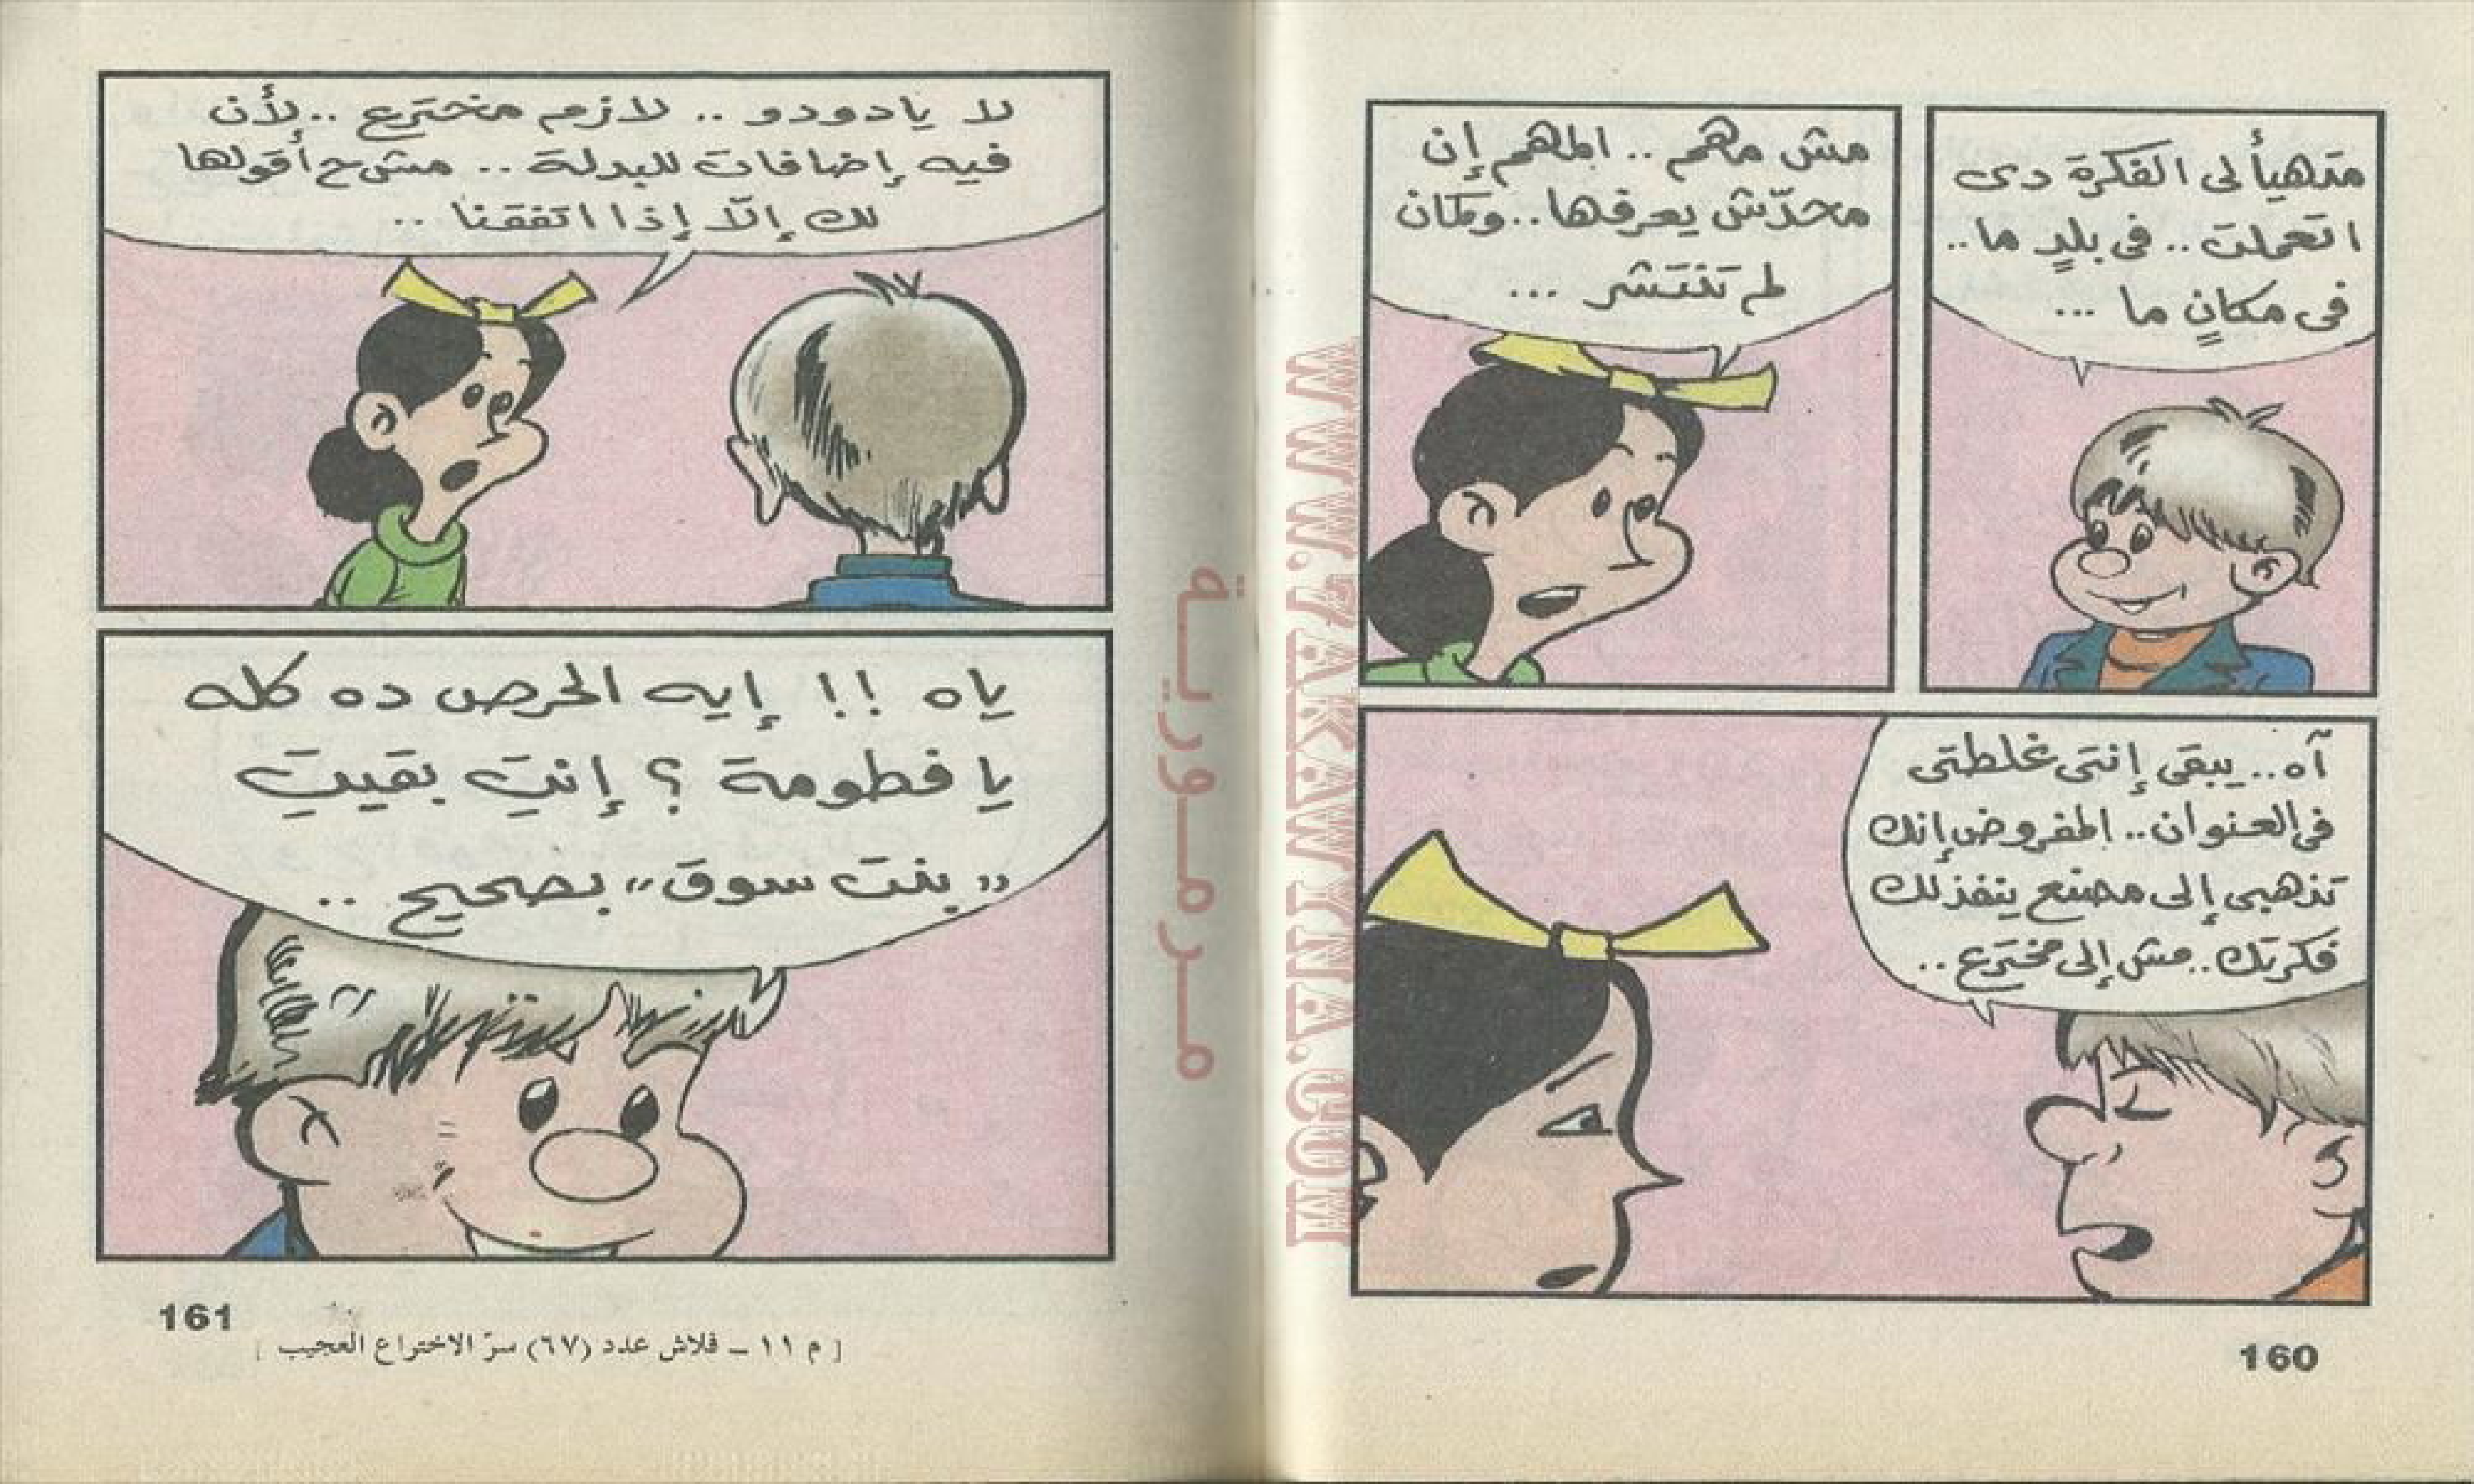 متهيألى الفكرة دى
اتعملت.. فى بلدٍ ما..
فى مكانٍ ما ...
مش مهم.. المهم إن
محدّش يعرفها.. وكمان
لم تنتشر ...
آه.. يبقى إنتى غلطتى
فى العنوان.. المفروض إنك
تذهبى إلى مصنع ينفذلك
فكرتك.. مش إلى مخترع..
160
لا يادودو .. لازم مخترع ..لأن
فيه إضافات للبدلة .. مش ح أقولها
لك إلّا إذا اتفقنا ..
ياه !! إيه الحرص ده كله
يا فطومة ؟ إنتِ بقيتِ
„ بنت سوق“ بصحيح ..
161
[ م ١١ - فلاش عدد (٦٧) سرّ الاختراع العجيب ]
مرمورية
WWW.7AKAWYNA.COM